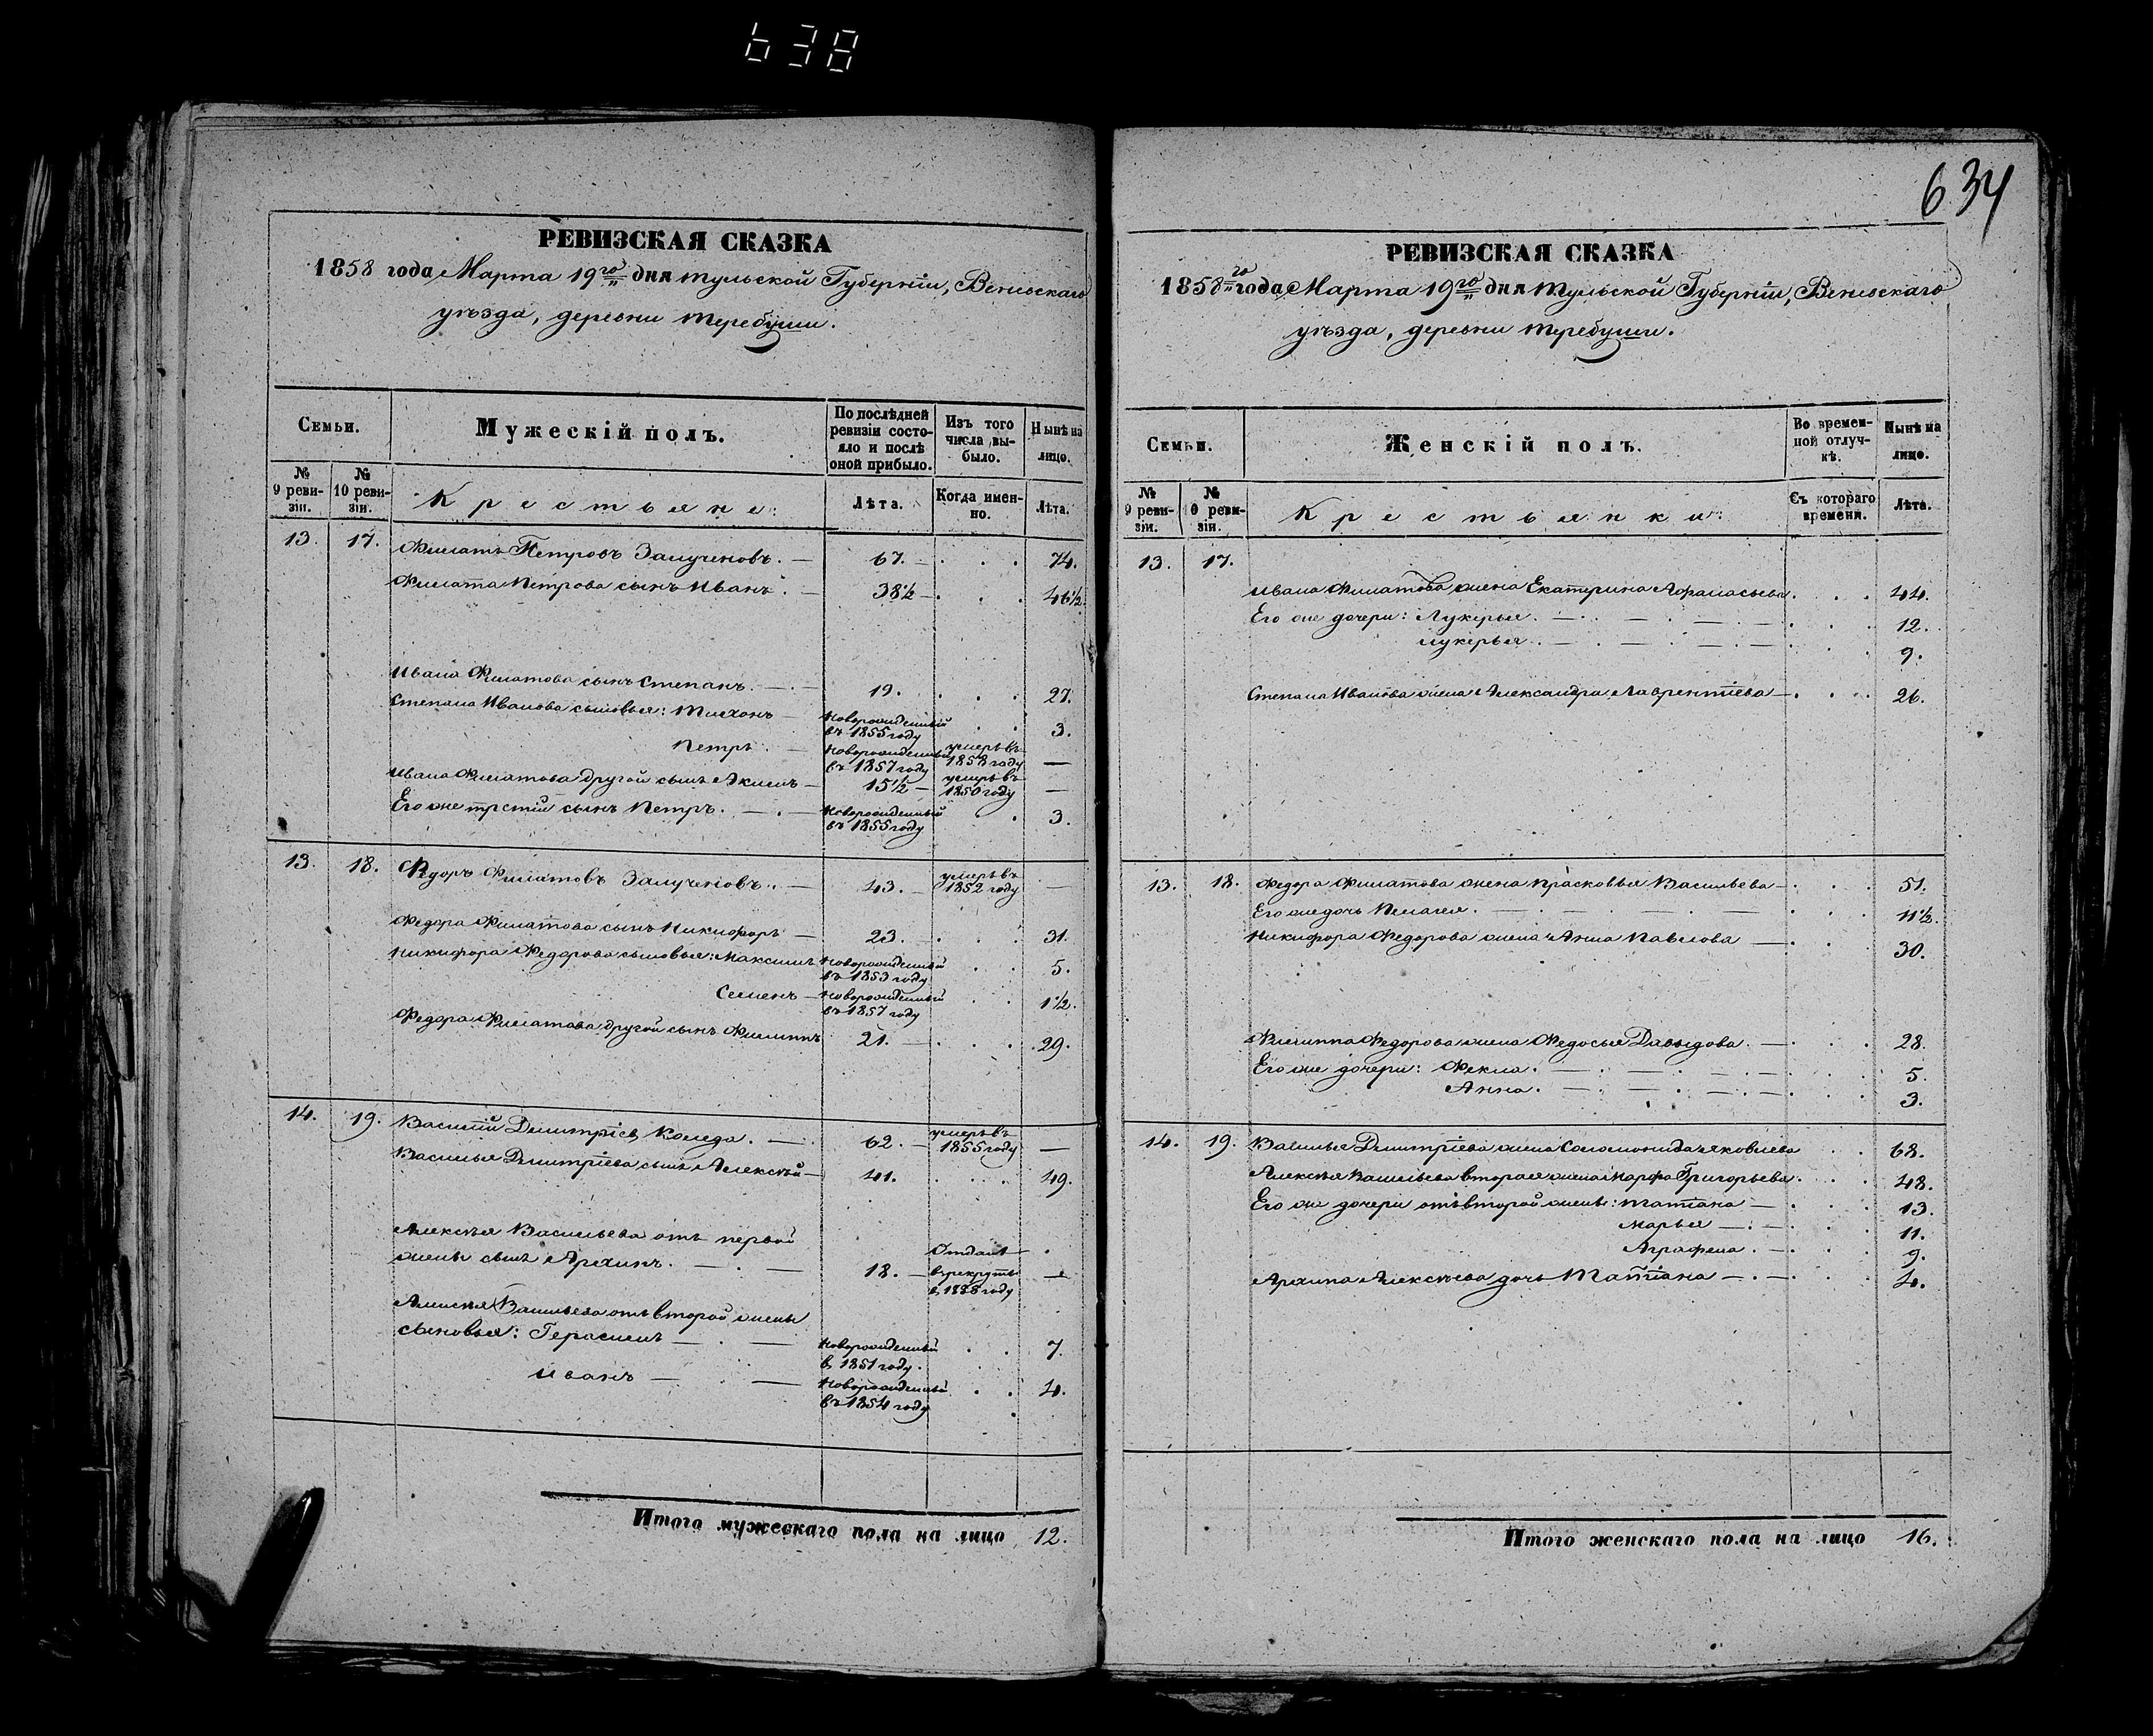 638
634
РЕВИЗСКАЯ СКАЗКА
1858 года Марта 19го дня Тульской Губерніи, Веневскаго
уѣзда, деревни Теребуши.
Семьи.
Мужескій полъ.
По послѣдней ревизіи состояло и послѣ оной прибыло.
Изъ того числа выбыло.
Нынѣ на лицо.
№ 9 ревизіи.
№ 10 ревизіи.
Крестьяне:
Лѣта.
Когда именно.
Лѣта.
13. 17. Филатъ Петровъ Залученовъ. — 67. — . . . 74.
Филата Петрова сынъ Иванъ. — 38½ — . . . 46½.
Ивана Филатова сынъ Степанъ. — . — 19. . . . 27.
Степана Иванова сыновья: Тихонъ — Новорожденный въ 1855 году . . 3.
Петръ. — Новорожденный въ 1857 году умеръ въ 1858 году —
Ивана Филатова другой сынъ Акимъ — 15½ — умеръ въ 1850 году —
Его же третій сынъ Петръ. — . — Новорожденный въ 1855 году . 3.
13. 18. Федоръ Филатовъ Залученовъ. . — 43. — умеръ въ 1852 году —
Федора Филатова сынъ Никифоръ — 23. — . . . 31.
Никифора Федорова сыновья: Максимъ Новорожденный въ 1853 году . . 5.
Семенъ — Новорожденный въ 1857 году . . 1½.
Федора Филатова другой сынъ Филиппъ 21. — . . . 29.
14. 19. Василій Дмитріев Коледа. — . 62. — умеръ въ 1855 году —
Василья Дмитріева сынъ Алексѣй — 41. . . . . 49.
Алексѣя Васильева отъ первой
жены сынъ Архипъ. — . — 18. — Отданъ в рекруты в 1858 году —
Алексѣя Васильева отъ второй жены
сыновья: Герасимъ — . — Новорожденный в 1851 году. . . 7.
Иванъ — . — Новорожденный въ 1854 году . . 4.
Итого мужескаго пола на лицо 12.
РЕВИЗСКАЯ СКАЗКА
1858го года Марта 19го дня Тульской Губерніи, Веневскаго
уѣзда, деревни Теребуши.
Семьи.
Женскій полъ.
Во временной отлучкѣ.
Нынѣ на лицо.
№ 9 ревизіи.
№ 0 ревизіи.
Крестьянки:
Съ котораго времени.
Лѣта.
13. 17.
Ивана Филатова жена Екатерина Афанасьева. . . . 44.
Его же дочери: Лукерья. — . . — . — . — . . . 12.
Лукерья. . — . — — . — . . . 9.
Степана Иванова жена Александра Лаврентіева — . . . . 26.
13. 18. Федора Филатова жена Прасковья Васильева — . . . 51.
Его же дочь Пелагея. — . — . — . — . . . 11½.
Никифора Федорова жена Анна Павлова — . . . 30.
Филиппа Федорова жена Федосья Давыдова. — . . . 28.
Его же дочери: Фекла. — . — . — . — . . . 5.
Анна. — . — . — . — . . . 3.
14. 19. Василья Дмитріева жена Соломонида Яковлева . . 68.
Алексѣя Васильева вторая жена Марфа Григорьева. . . . 48.
Его же дочери отъ второй жены: Татіана — . . . 13.
Марья — . — . . . 11.
Аграфена. — . . . 9.
Архипа Алексѣева дочь Татіана — . — . . . 4.
Итого женскаго пола на лицо 16.